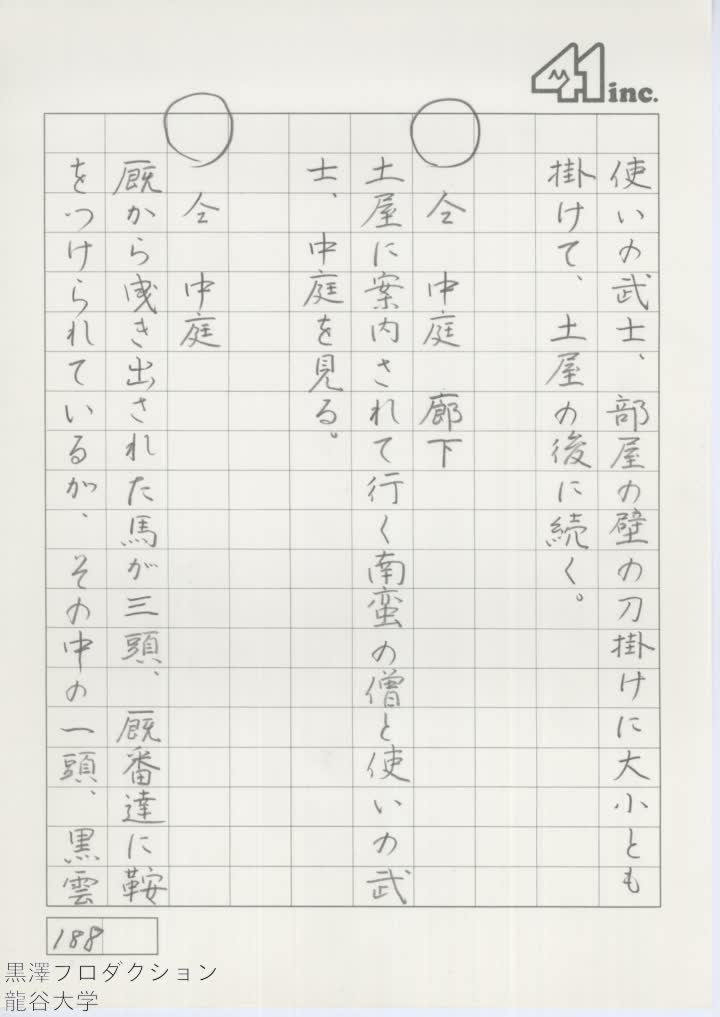 41 inc.
使いの武士、部屋の壁の刀掛けに大小とも
掛けて、土屋の後に続く。
仝 中庭 廊下
土屋に案内されて行く南蛮の僧と使いの武
士、中庭を見る。
仝 中庭
厩から曳き出された馬が三頭、厩番達に鞍
をつけられているが、その中の一頭、黒雲
188
黒澤フロダクション
龍谷大学